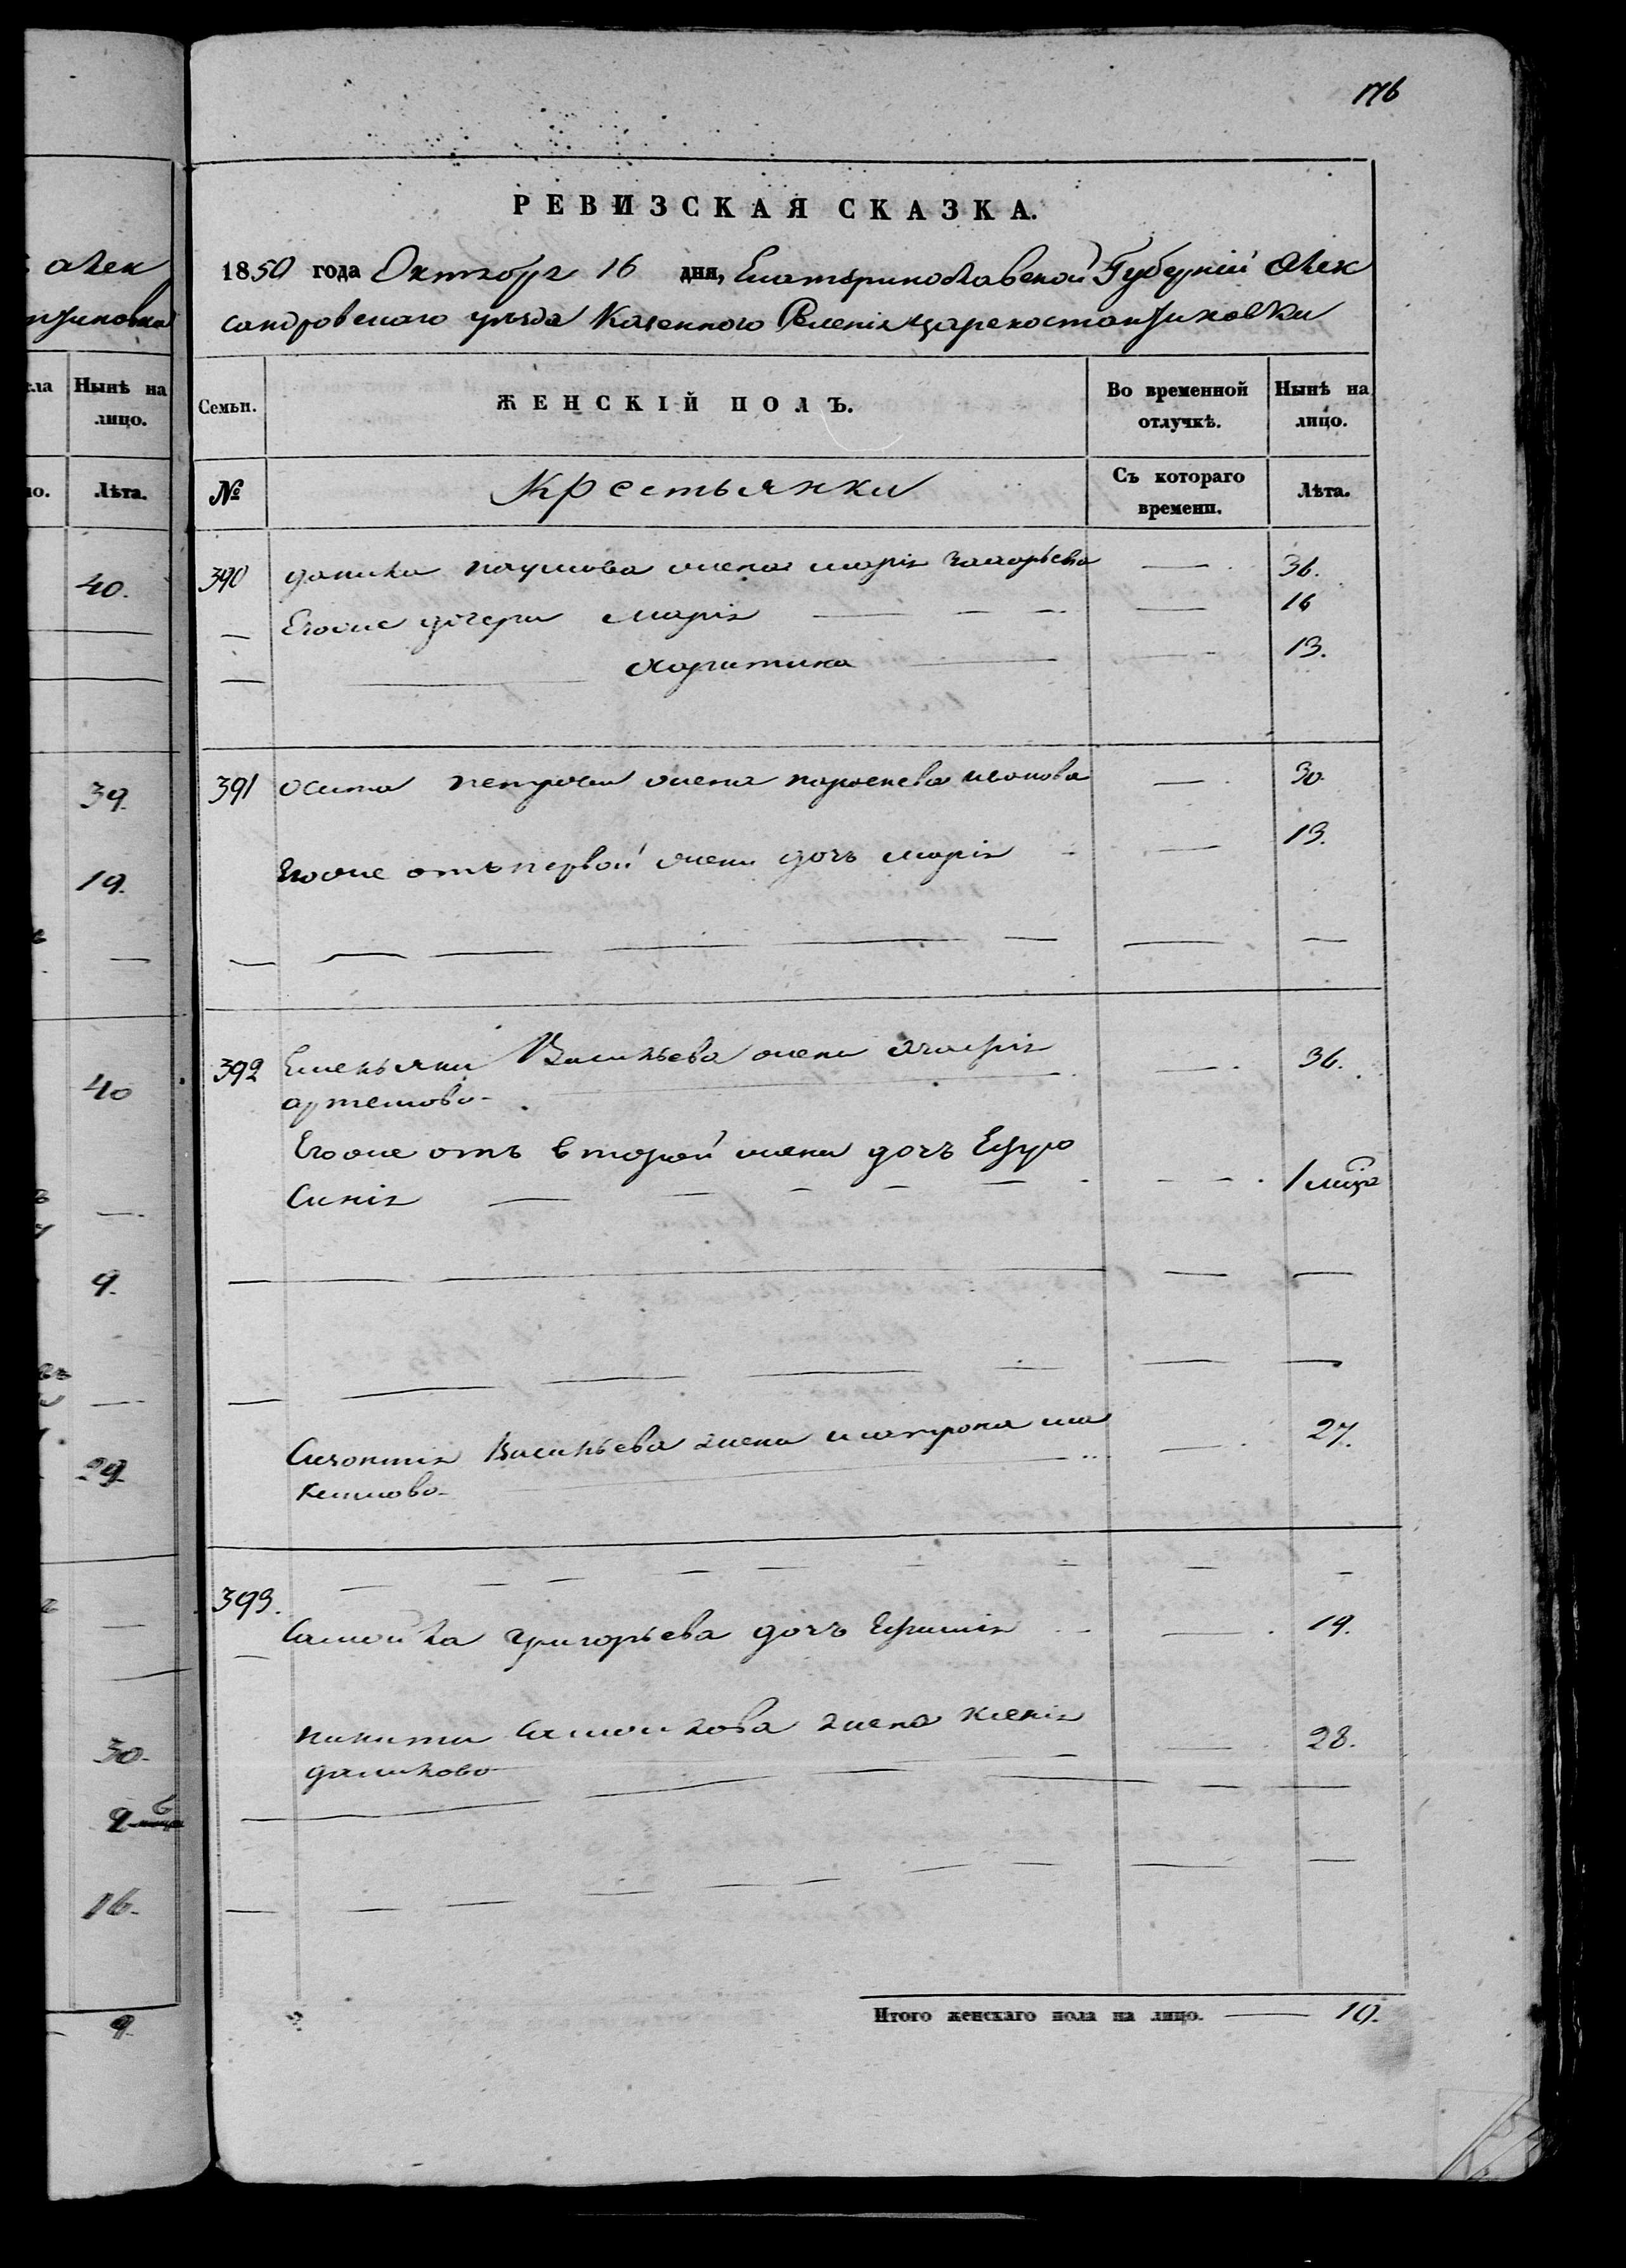 176
алек
нтиновка
ела
Нынѣ на
лицо.
ло.
Лѣта.
40.
39.
19.
40
9.
29
30.
2 мца
16.
9.
РЕВИЗСКАЯ СКАЗКА.
1850 года Октября 16 дня, Екатеринославской Губерніи Алек
сандровского уезда Казенного Селенія Цареконстантиновки
Семьи.
ЖЕНСКІЙ ПОЛЪ.
Во временной
отлучкѣ.
Нынѣ на
лицо.
№
Крестьянки
Съ котораго
времени.
Лѣта.
390 данила наумова жена марія 36.
Егоже дочери Марія 16
Харитина 13.
391 Осипа петрова жена иванова 30
Егоже отъ первой жены дочь марія 13.
392 Емельяна Васильева жена 36.
артемова
Егоже отъ второй жены дочь Ефро
синія 1 мца
Васильева жена матрона ма
ксимова 27.
393.
Самойла григорьева дочь Ефимія 19.
никиты Самойлова жена ксенія
данилова 28.
Итого женскаго пола на лицо. 10.